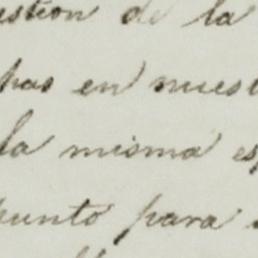 estion de la
has en nuest
la misma es
punto para